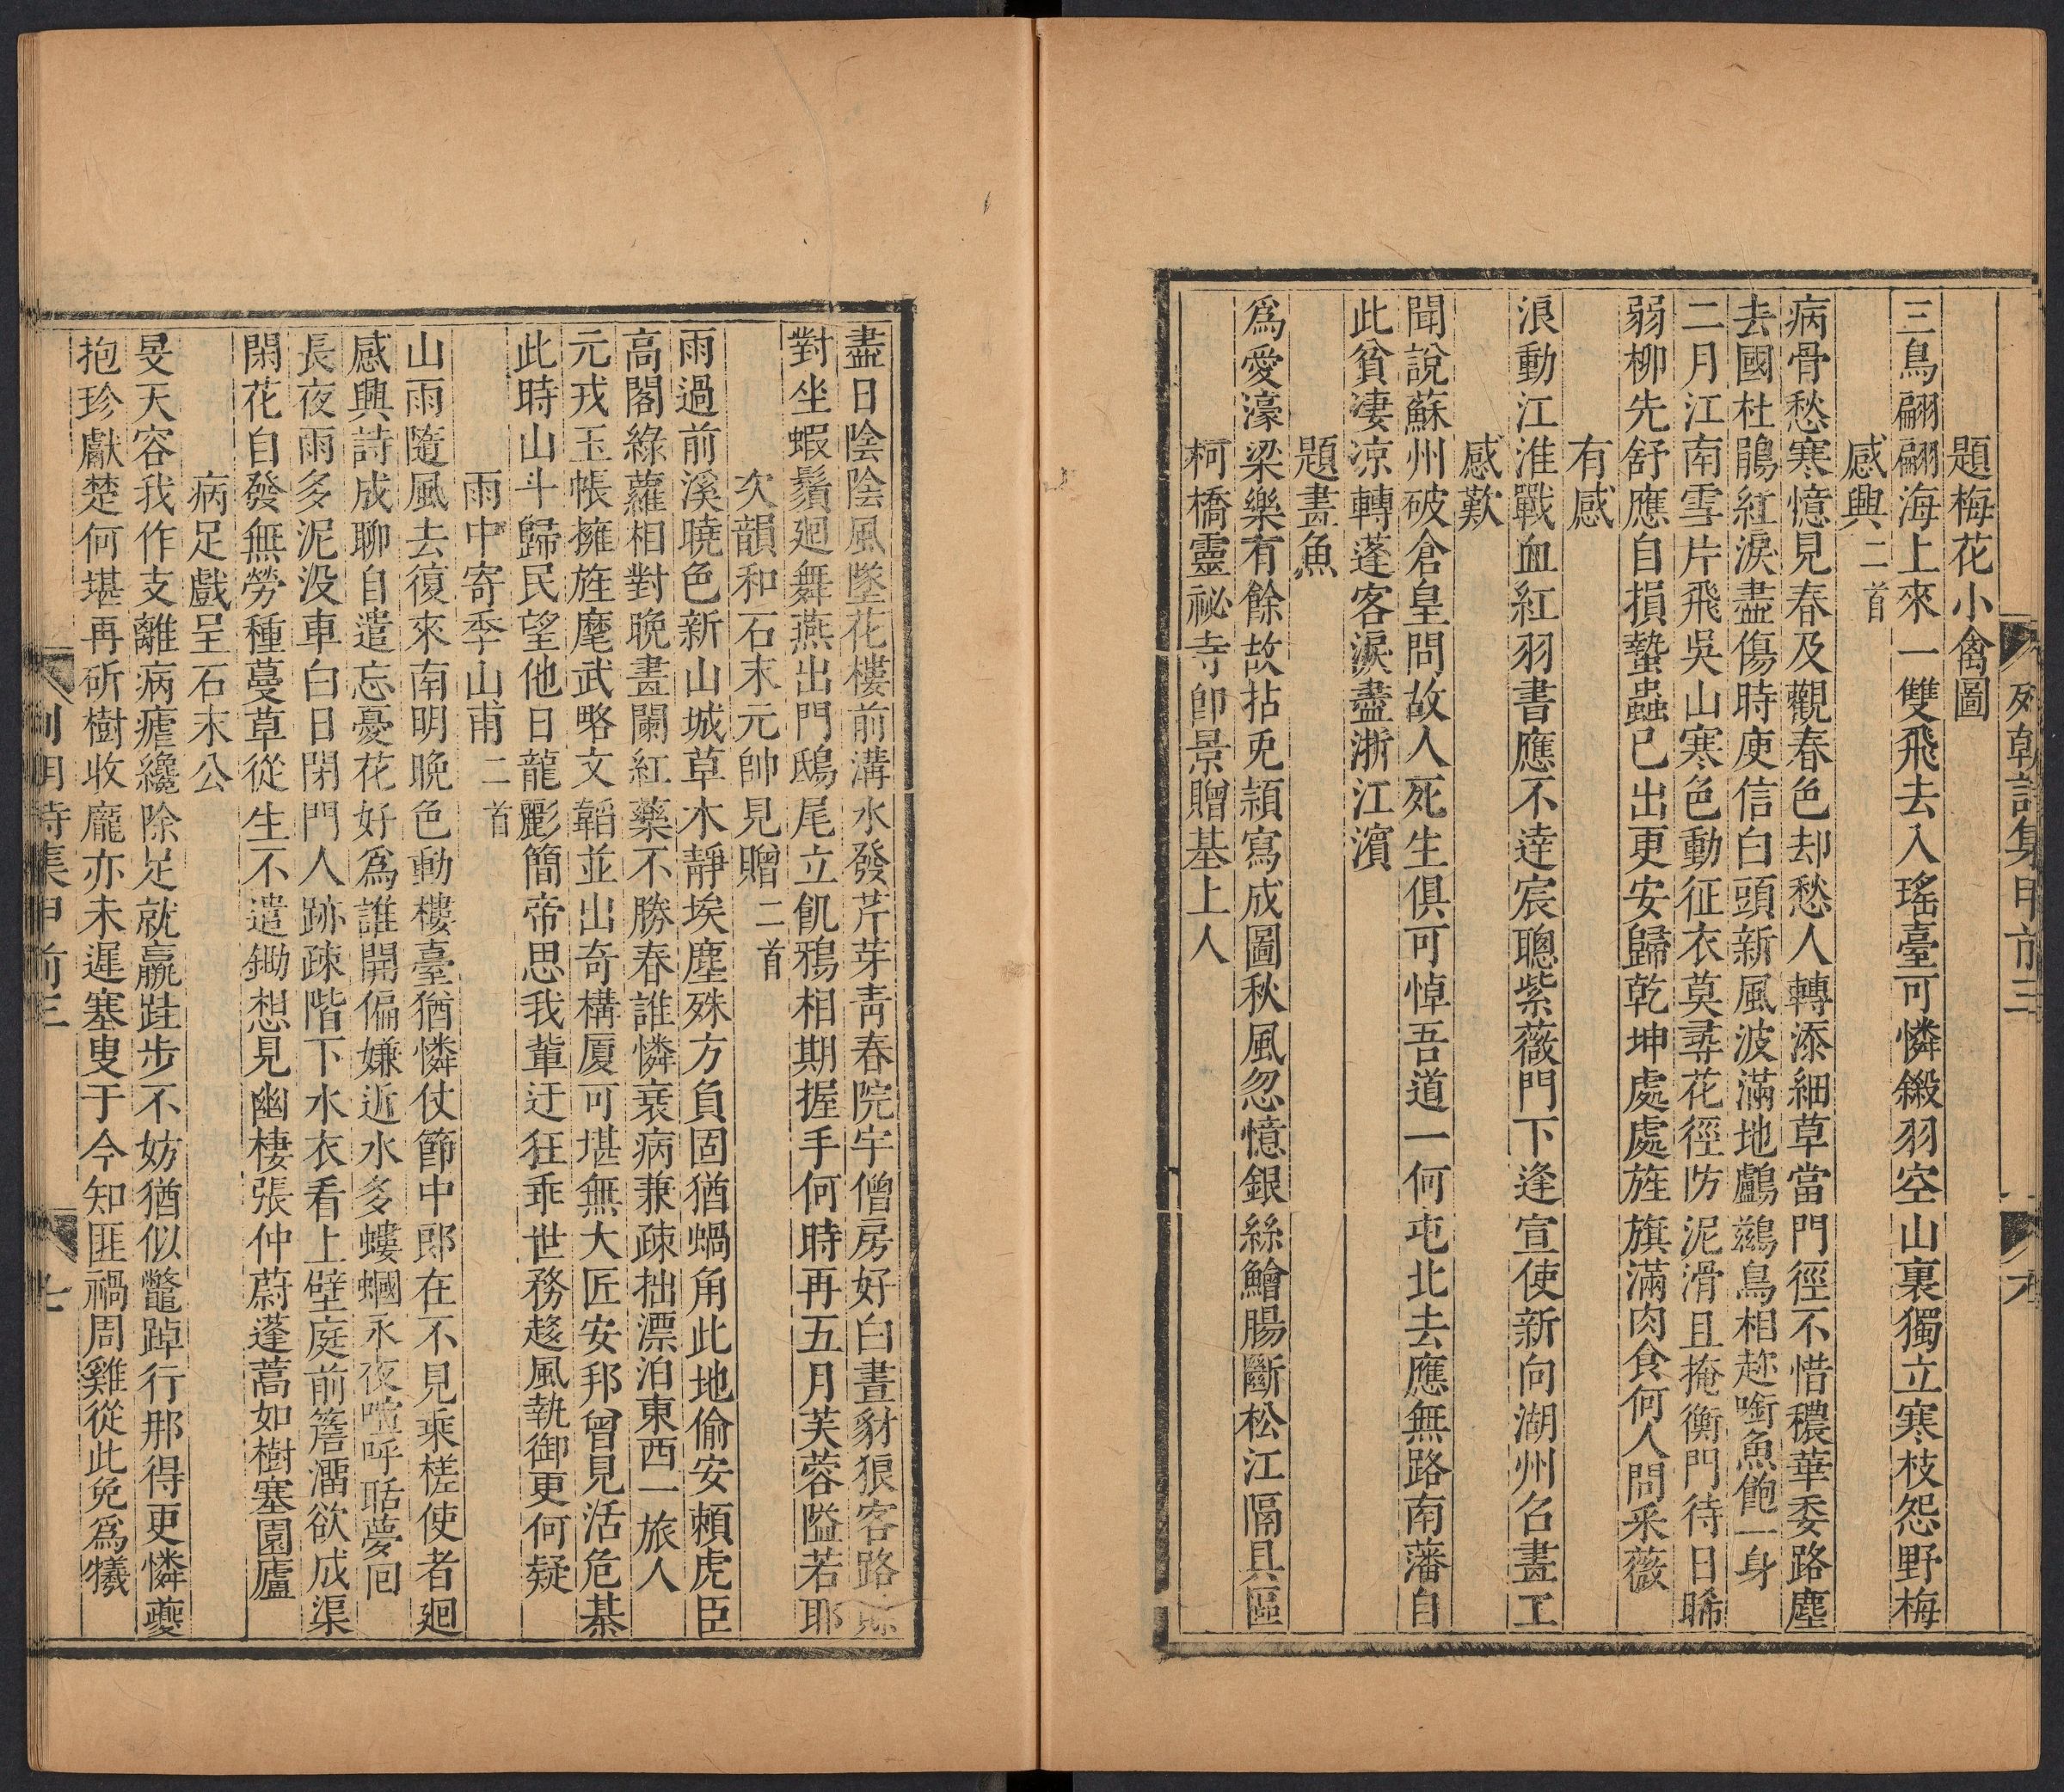 列朝詩集甲前三
題梅花小禽圖
三鳥翩翩海上來一雙飛去入瑤臺可憐鎩羽空山裏獨立寒枝怨野梅
感興二首
病骨愁寒憶見春及觀春色却愁人轉添細草當門徑不惜穠華委路塵
去國杜鵑紅淚盡傷時庾信白頭新風波滿地鸕鷀鳥相趂啣魚飽一身
二月江南雪片飛吳山寒色動征衣莫尋花徑防泥滑且掩衡門待日晞
弱柳先舒應自損蟄蟲已出更安歸乾坤處處旌旗滿肉食何人問采薇
有感
浪動江淮戰血紅羽書應不達宸聰紫薇門下逢宣使新向湖州召畫工
感歎
聞說蘇州破倉皇問故人死生俱可悼吾道一何屯北去應無路南藩自
此貧凄涼轉蓬客淚盡浙江濱
題畫魚
爲愛濠梁樂有餘故拈兎頴寫成圖秋風忽憶銀絲鱠腸斷松江隔具區
柯橋靈祕寺卽景贈基上人
盡日陰陰風墜花樓前溝水發芹芽靑春院宇僧房好白晝豺狼客路賒
對坐蝦鬚廻舞燕出門鴟尾立飢鴉相期握手何時再五月芙蓉隘若耶
次韻和石末元帥見贈二首
雨過前溪曉色新山城草木靜埃塵殊方負固猶蝸角此地偷安頼虎臣
高閣綠蘿相對晚畫闌紅藥不勝春誰憐衰病兼疎拙漂泊東西一旅人
元戎玉帳擁旌麾武略文韜並出奇構厦可堪無大匠安邦曾見活危棊
此時山斗歸民望他日龍彲簡帝思我軰迂狂乖世務趍風執御更何疑
雨中寄季山甫二首
山雨隨風去復來南明晚色動樓臺猶憐仗節中郎在不見乘槎使者廻
感興詩成聊自遣忘憂花好爲誰開偏嫌近水多螻蟈永夜喧呼聒夢回
長夜雨多泥没車白日閉門人跡疎階下水衣看上壁庭前簷溜欲成渠
閑花自發無勞種蔓草從生不遣鋤想見幽棲張仲蔚蓬蒿如樹塞園廬
病足戲呈石末公
旻天容我作支離病瘧纔除足就羸跬步不妨猶似鼈踔行那得更憐夔
抱珍獻楚何堪再斫樹收龐亦未遲塞叟于今知匪禍周雞從此免爲犧
列朝詩集甲前三
七